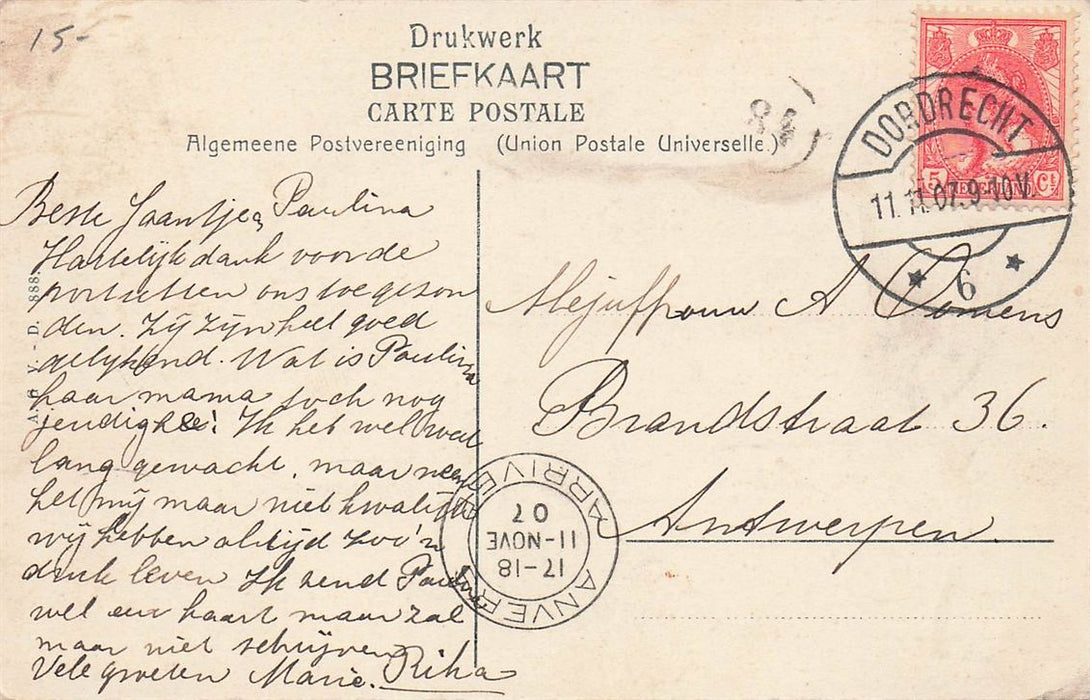 15-
Drukwerk
BRIEFKAART
CARTE POSTALE
Algemeene Postvereeniging (Union Postale Universelle.)
84
DORDRECHT
11.11.07.9-10V
6
5 NEDERLAND Ct
Beste Jaantje en Paulina
Hartelijk dank voor de
portretten ons toegezon
den. Zij zijn heel goed
gelijkend. Wat is Paulina
haar mama toch nog
jeugdig hé! Ik heb wel wat
lang gewacht, maar neem
het mij maar niet kwalijk
wij hebben altijd zoo'n
druk leven Ik zend Paulina
wel een kaart maar zal
maar niet schrijven
Vele groeten Marie. Riha
A. N. G. V. - D. 888.
Mejuffrouw A Comens
Brandstraat 36.
Antwerpen.
ANVERS
17-18
11-NOVE
07
ARRIVEE